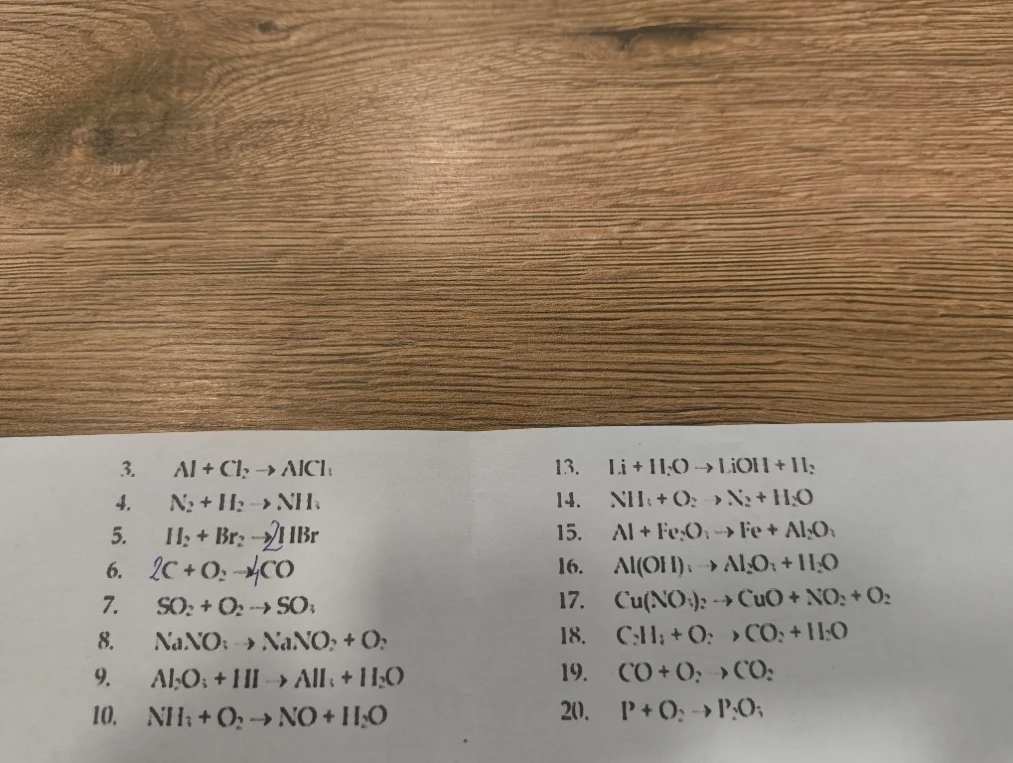 3. Al + Cl₂ → AlCl₃
4. N₂ + H₂ → NH₃
5. H₂ + Br₂ → 2HBr
6. 2C + O₂ → 4CO
7. SO₂ + O₂ → SO₃
8. NaNO₃ → NaNO₂ + O₂
9. Al₂O₃ + HI → AlI₃ + H₂O
10. NH₃ + O₂ → NO + H₂O
13. Li + H₂O → LiOH + H₂
14. NH₃ + O₂ → N₂ + H₂O
15. Al + Fe₂O₃ → Fe + Al₂O₃
16. Al(OH)₃ → Al₂O₃ + H₂O
17. Cu(NO₃)₂ → CuO + NO₂ + O₂
18. + O₂ → CO₂ + H₂O
19. CO + O₂ → CO₂
20. P + O₂ →